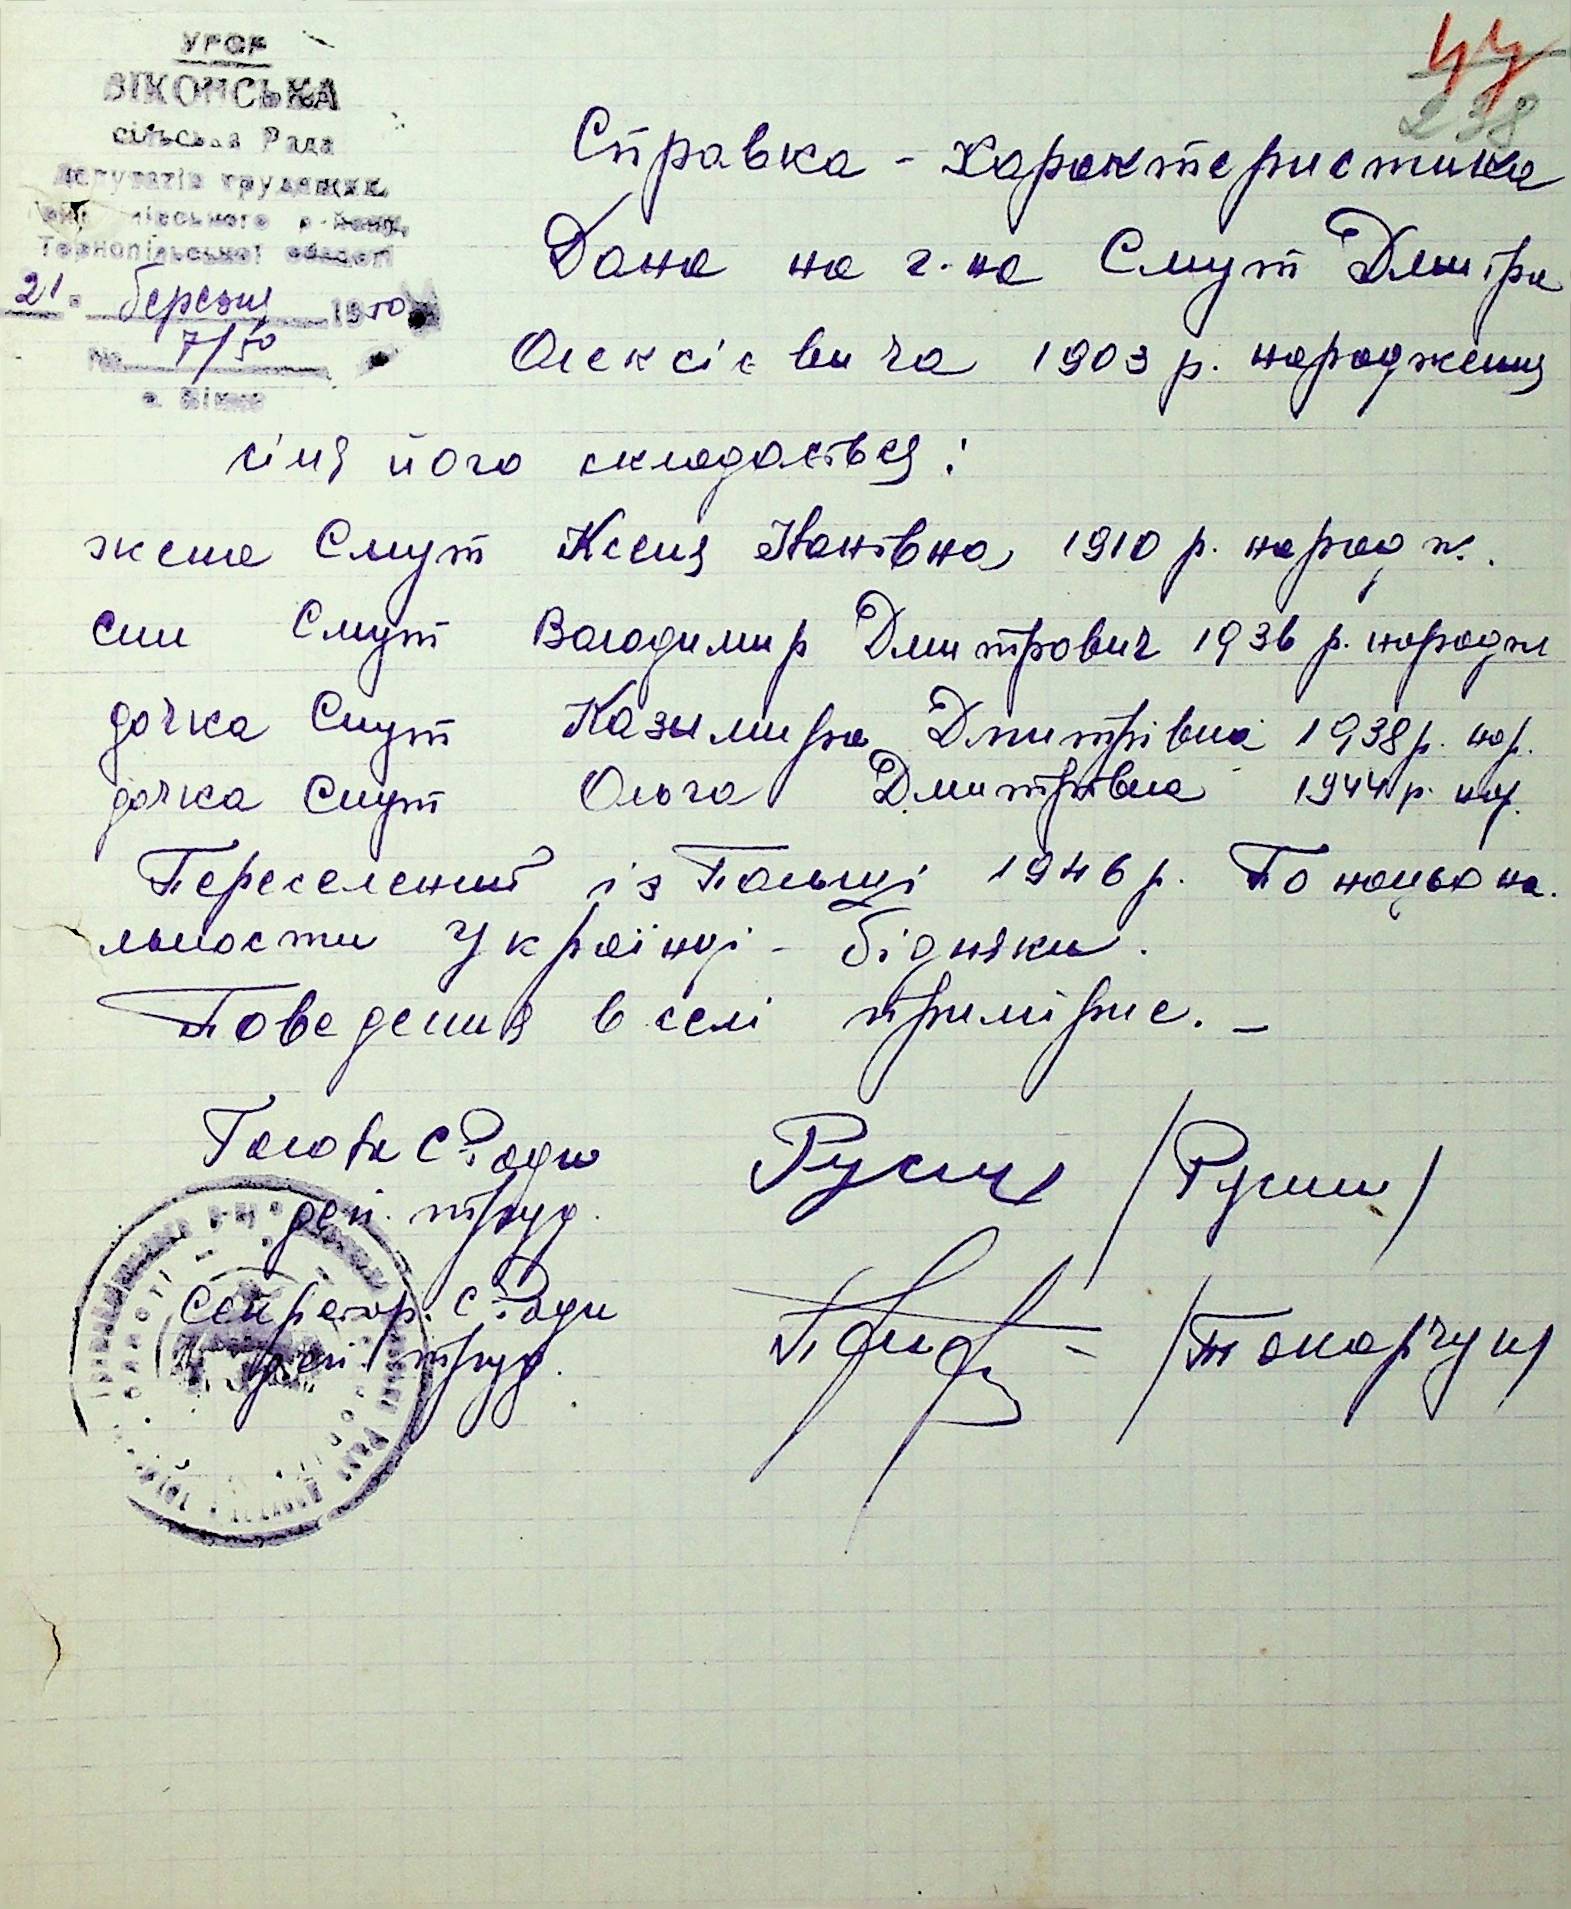 УРСР
ВІКОНСЬКА
сільська Рада
депутатів трудящих
Тернопільської області
21. березня 1950
№ 7/50
с. Вікно
44
238
Справка - Характеристика
Дана на г-на Смут Дмитра
Олексієвича 1903 р. народження
сімя його складається:
жена Смут Ксеня Іванівна 1910 р. народж.
син Смут Володимир Дмитрович 1936 р. народж
дочка Смут Казимира Дмитрівна 1938 р. нар.
дочка Смут Ольга Дмитрівна 1944 р. нар.
Переселений із Польщі 1946 р. По націона-
льности Українці - бідняки.
Поведения в селі примірне. -
Голова С Ради
деп. труд.
Русин /Русин/
Секретар. с Ради
деп. труд.
/Токарчук/